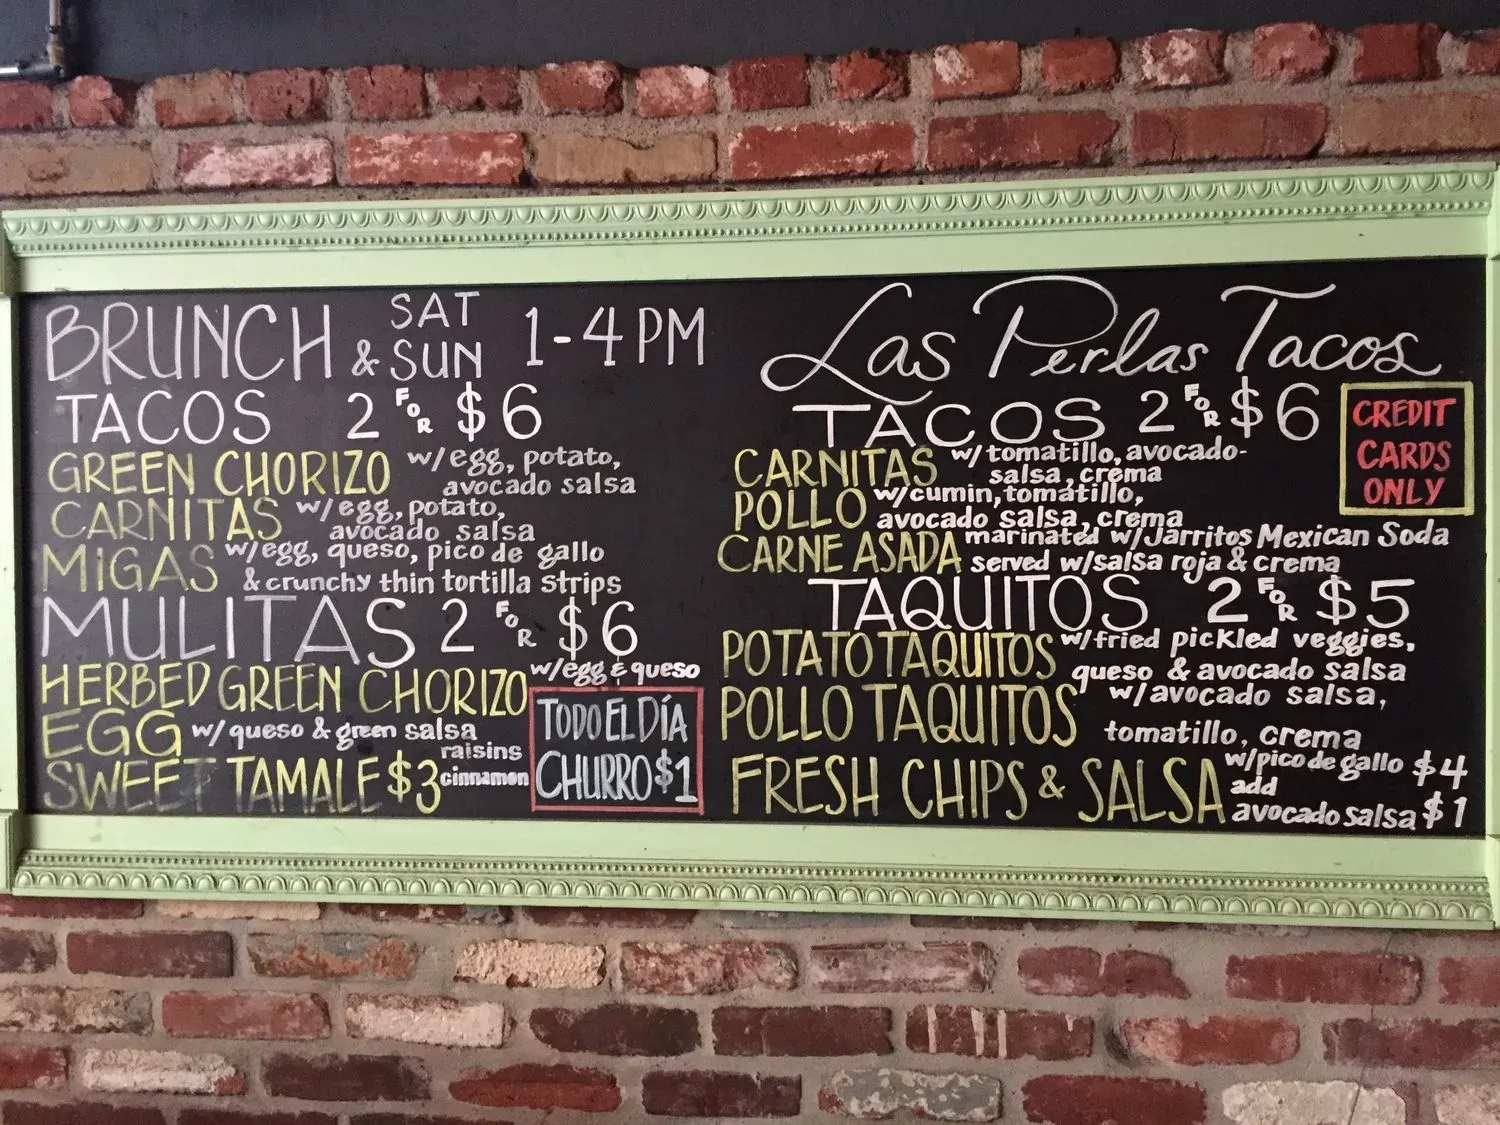 BRUNCH SAT & SUN 1-4 PM
TACOS 2 FOR $6
GREEN CHORIZO w/egg, potato,
avocado salsa
CARNITAS w/egg, potato,
avocado salsa
MIGAS w/egg, queso, pico de gallo
& crunchy thin tortilla strips
MULITAS 2 FOR $6
HERBED GREEN CHORIZO w/egg & queso
EGG w/ queso & green salsa
SWEET TAMALE $3 raisins
cinnamon
TODO EL DÍA
CHURRO $1
Las Perlas Tacos
TACOS 2 FOR $6
CREDIT
CARDS
ONLY
CARNITAS w/tomatillo, avocado-
salsa, crema
POLLO w/cumin, tomatillo,
avocado salsa, crema
CARNE ASADA marinated w/Jarritos Mexican Soda
served w/salsa roja & crema
TAQUITOS 2 FOR $5
POTATO TAQUITOS w/fried pickled veggies,
queso & avocado salsa
POLLO TAQUITOS w/avocado salsa,
tomatillo, crema
FRESH CHIPS & SALSA w/pico de gallo $4
add
avocado salsa $1